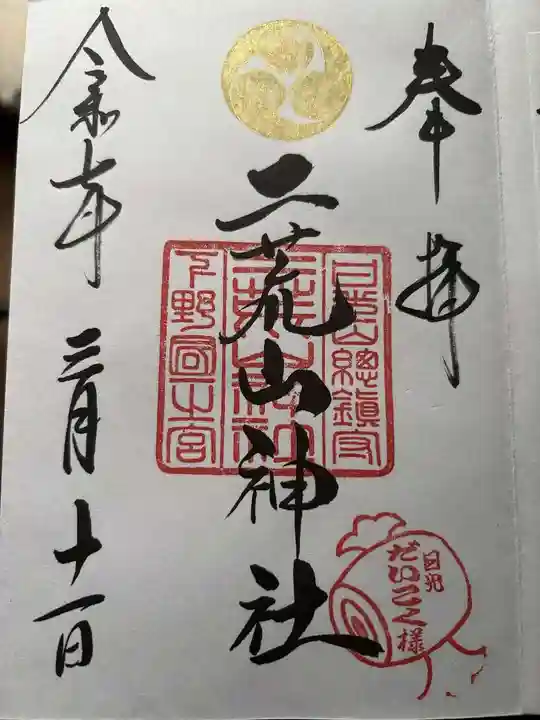 奉拝
日光山總鎮守
二荒山神社
二荒山神社
下野国一之宮
日光
だいこく様
令和七年三月十一日